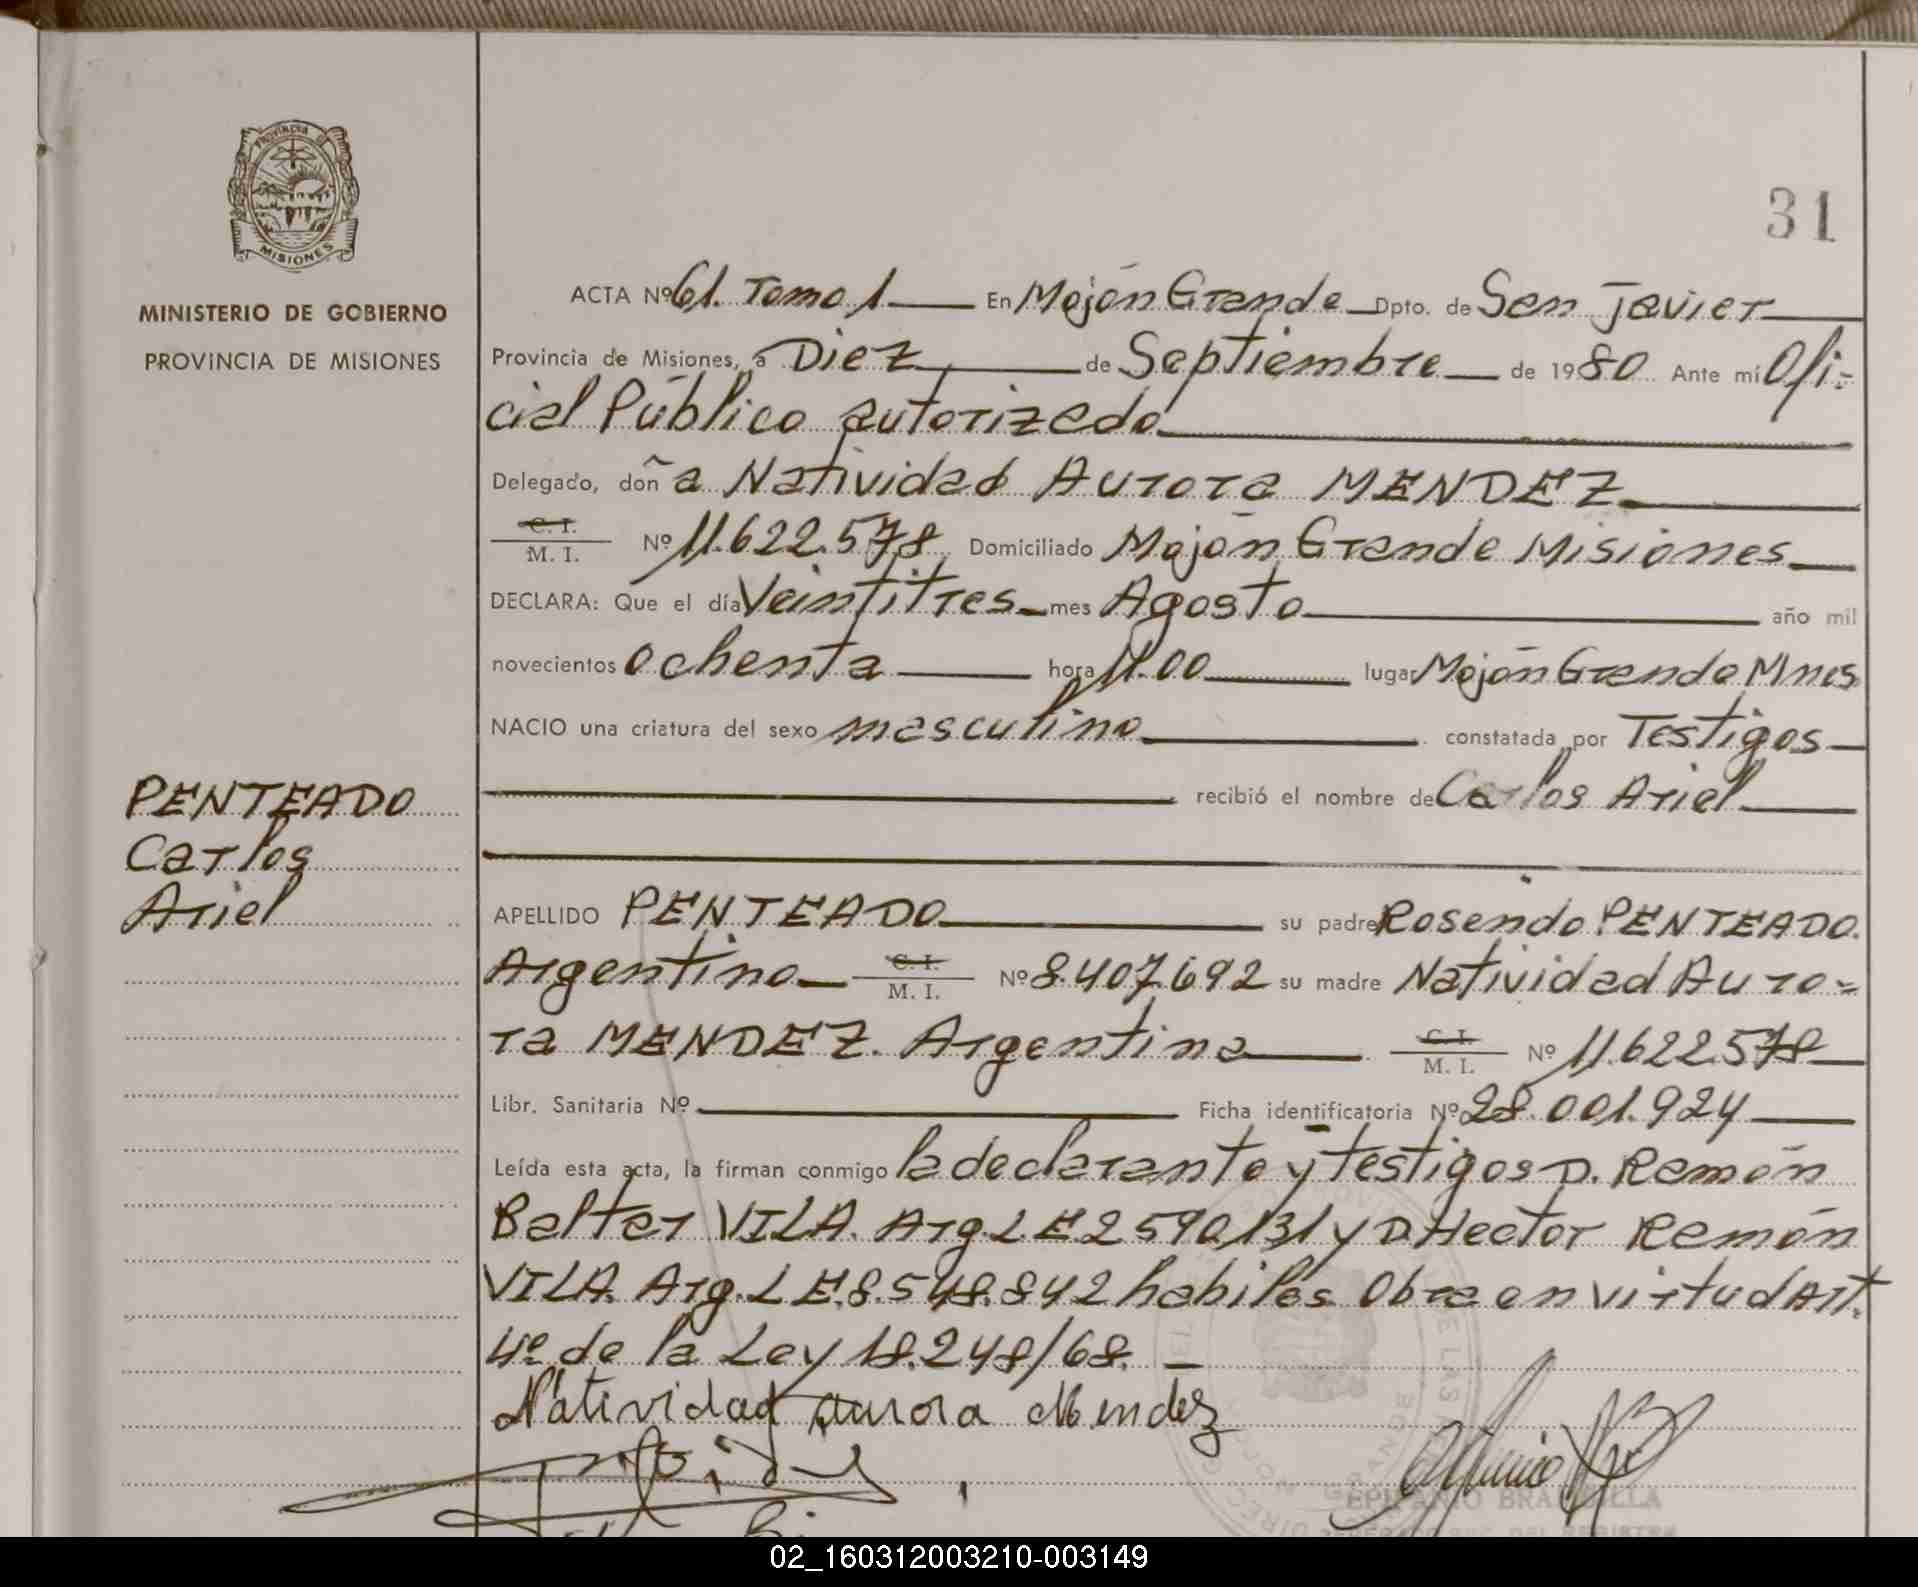 PROVINCIA DE
MISIONES
MINISTERIO DE GOBIERNO
PROVINCIA DE MISIONES
31
ACTA Nº 61. Tomo 1 En Mojón Grande Dpto. de San Javier
Provincia de Misiones, a Diez de Septiembre de 1980 Ante mí Ofi-
cial Público autorizado
Delegado, doña Natividad Aurora MENDEZ
C. I.
M. I. Nº 11.622.578 Domiciliado Mojón Grande Misiones
DECLARA: Que el día Veintitres mes Agosto año mil
novecientos ochenta hora 11.00 lugar Mojón Grande Mnes
NACIO una criatura del sexo masculino constatada por Testigos
recibió el nombre de Carlos Ariel
PENTEADO
Carlos
Ariel
APELLIDO PENTEADO su padre Rosendo PENTEADO.
Argentino C. I. M. I. Nº 8.407.692 su madre Natividad Auro-
ra MENDEZ. Argentina C. I. M. I. Nº 11.622.578
Libr. Sanitaria Nº Ficha identificatoria Nº 28.001.924
Leída esta acta, la firman conmigo la declarante y testigos D. Ramón
Balter VILA. Arg. L E 2590131 y D. Hector Ramón
VILA. Arg. L E. 8.548.842 habiles Obra en virtud Art.
4º de la Ley 18.248/68.
Natividad Aurora Mendez
02_160312003210-003149